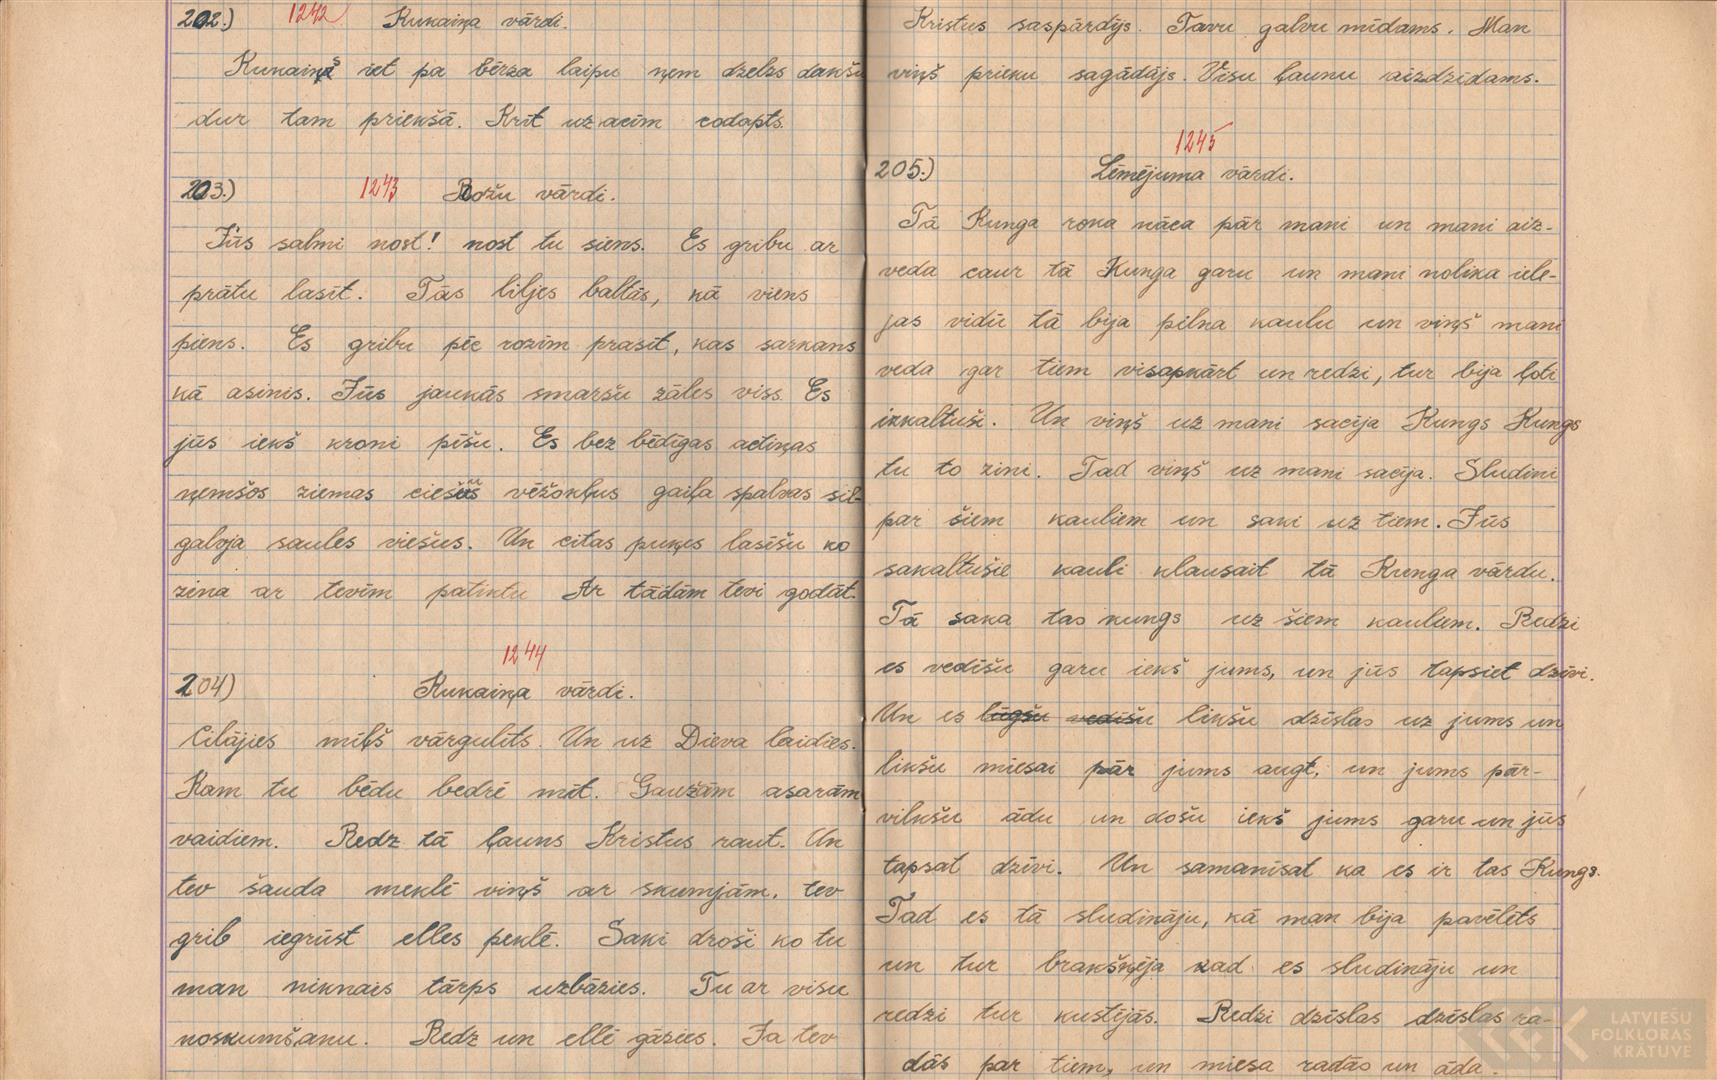 202.) 1242 Kunaiņa vārdi.
Kunaiņš iet pa bērza laipu ņem dzelzs dakšu
dur tam priekšā. Krīt uz acīm codapts.
203.) 1243 Rožu vārdi.
Jūs salmi nost! nost tu siens. Es gribu ar
prātu lasīt. Tās liljes baltās, kā viens
piens. Es gribu pēc rozīm prasīt, kas sarkans
kā asinis. Jūs jaukās smaršu zāles viss. Es
jūs iekš kroni pīšu. Es bez bēdīgas actiņas
ņemšos ziemas ciešus vēžokļus gaiļa spalvas sil-
galvja saules viešus. Un citas puķes lasīšu ko
zina ar tevīm patiktu Ar tādām tevi godāt.
1244
204) Kunaiņa vārdi.
Cilājies mīļš vārgulīts. Un uz Dieva laidies.
Kam tu bēdu bedrē mīt. Gaužām asarām
vaidiem. Redz tā ļauns Kristus raut. Un
tev šauda meklē viņš ar skumjām, tev
grib iegrūst elles peklē. Saki droši ko tu
man niknais tārps uzbāzies. Tu ar visu
noskumšanu. Redz un ellē gāzies. Ja tev
Kristus saspārdījs. Tavu galvu mīdams. Man
viņš prieku sagādājs. Visu ļaunu aizdzīdams.
1245
205.) Lēmējuma vārdi.
Tā Kunga roka nāca pār mani un mani aiz-
veda caur tā Kunga garu un mani nolika iele-
jas vidū tā bija pilna kaulu un viņš mani
veda gar tiem visapkārt un redzi, tur bija ļoti
izkaltuši. Un viņš uz mani sacīja Kungs Kungs
tu to zini. Tad viņš uz mani sacīja. Sludini
par šiem kauliem un saki uz tiem. Jūs
sakaltušie kauli klausait tā Kunga vārdu.
Tā saka tas kungs uz šiem kauliem. Redzi
es vedīšu garu iekš jums, un jūs tapsiet dzīvi.
Un es lūgšu vedīšu likšu dzīslas uz jums un
likšu miesai pār jums augt, un jums pār-
vilkšu ādu un došu iekš jums garu un jūs
tapsat dzīvi. Un samanīsat ka es ir tas Kungs.
Tad es tā sludināju, kā man bija pavēlēts
un tur brakšķēja kad es sludināju un
redzi tur kustējās. Redzi dzīslas dzīslas ra-
dās par tiem, un miesa radās un āda.
LATVIEŠU
FOLKLORAS
KRĀTUVE